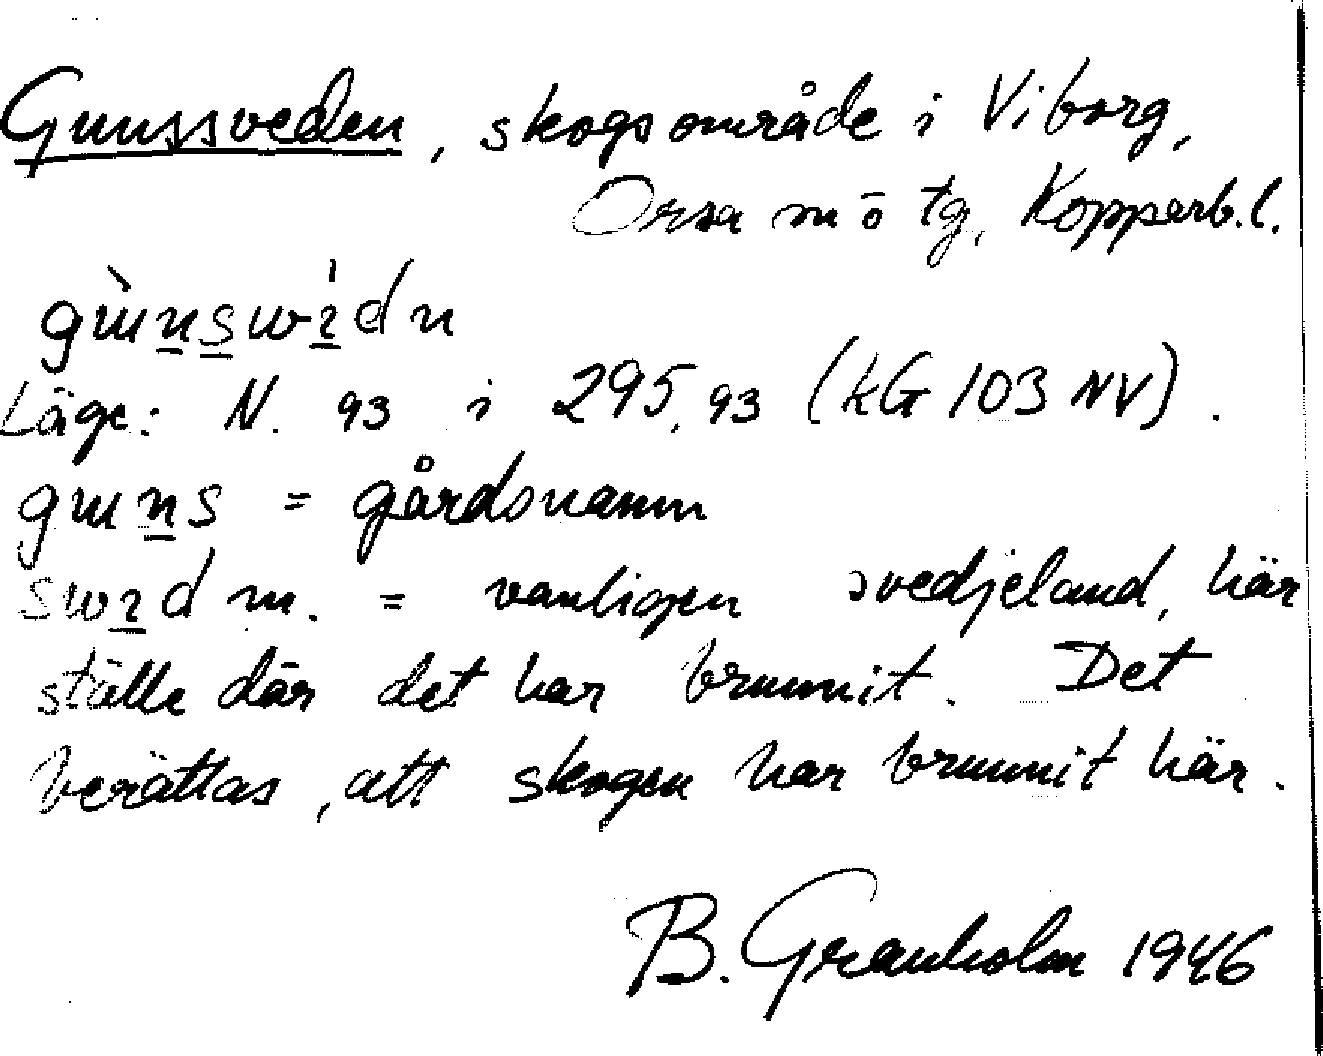 Gunssveden, skogsområde i Viborg,
Orsa m o tg, Kopparb. l.
Läge: N. 93 i 295,93 (kG 103 NV).
= gårdsnamn
m. = vanligen svedjeland, här
ställe där det har brunnit. Det
berättas, att skogen har brunnit här.
B. Granholm 1946